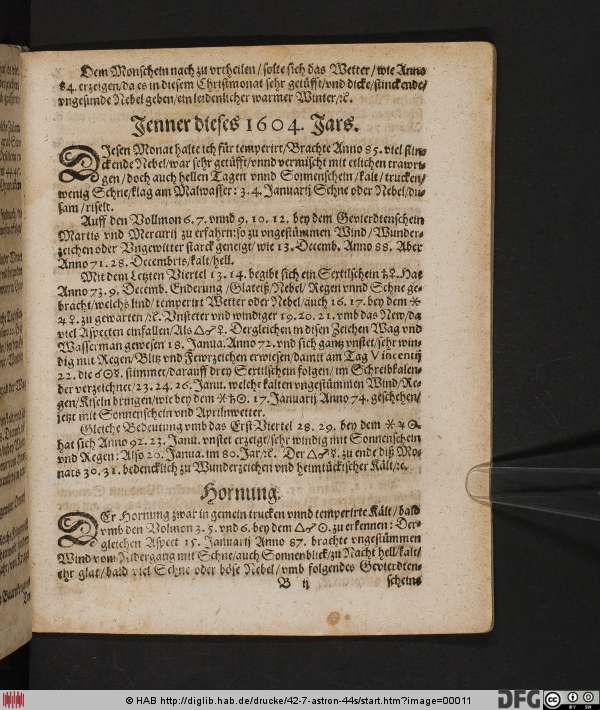 Dem Monschein nach zu vrtheilen / solte sich das Wetter / wie Anno
84. erzeigen / da es in diesem Christmonat sehr getüfft / vnd dicke / stinckende /
vngesunde Nebel geben / ein leidenlicher warmer Winter / ꝛc.
Jenner dieses 1604. Jars.
DJesen Monat halte ich für temperirt / Brachte Anno 85. viel stin-
ckende Nebel / war sehr getüfft / vnnd vermischt mit etlichen trawri-
gen / doch auch hellen Tagen vnnd Sonnenschein / kalt / trucken /
wenig Schne / klag am Malwasser: 3. 4. Januarij Schne oder Nebel / du-
sam / riselt.
Auff den Vollmon 6. 7. vnnd 9. 10. 12. bey dem Gevierdtenschein
Martis vnd Mercurij zu erfahrn: so zu vngestümmen Wind / Wunder-
zeichen oder Vngewitter starck geneigt / wie 13. Decemb. Anno 88. Aber
Anno 71. 28. Decembris / kalt / hell.
Mit dem Letzten Viertel 13. 14. begibt sich ein Sextilschein ♄☿. Hat
Anno 73. 9. Decemb. Enderung / Glateiß / Nebel / Regen vnnd Schne ge-
bracht / welchs lind / temperirt Wetter oder Nebel / auch 16. 17. bey dem ⚹
♃☿. zu gewarten / ꝛc. Vnstetter vnd windiger 19. 20. 21. vmb das New / da
viel Aspecten einfallen / Als △♂☿. Dergleichen in disen Zeichen Wag vnd
Wasserman gewesen 18. Janua. Anno 72. vnd sich gantz vnstet / sehr win-
dig mit Regen / Blitz vnd Fewrzeichen erwiesen / damit am Tag Vincentij
22. die ☌☉☿. stimmet / darauff drey Sextilschein folgen / im Schreibkalen-
der verzeichnet / 23. 24. 26. Janu. welche kalten vngestümmen Wind / Re-
gen / Kiseln bringen / wie bey dem ⚹♄☉. 17. Januarij Anno 74. geschehen /
jetzt mit Sonnenschein vnd Aprilnwetter.
Gleiche Bedeutung vmb das Erst Viertel 28. 29. bey dem ⚹♃☉.
hat sich Anno 92. 23. Janu. vnstet erzeigt / sehr windig mit Sonnenschein
vnd Regen: Also 20. Janua. im 80. Jar / ꝛc. Der △♂☿. zu ende diß Mo-
nats 30. 31. bedencklich zu Wunderzeichen vnd heimtückischer Kält / ꝛc.
Hornung.
DEr Hornung zwar in gemein trucken vnnd temperirte Kält / bald
vmb den Volmon 3. 5. vnd 6. bey dem △♂☉. zu erkennen: Der-
gleichen Aspect 15. Januarij Anno 87. brachte vngestümmen
Wind vom Nidergang mit Schne / auch Sonnenblick / zu Nacht hell / kalt /
ehr glat / bald viel Schne oder böse Nebel / vmb folgendes Gevierdten-
B ij scheins
© HAB http://diglib.hab.de/drucke/42-7-astron-44s/start.htm?image=00011
DFG
CC BY SA